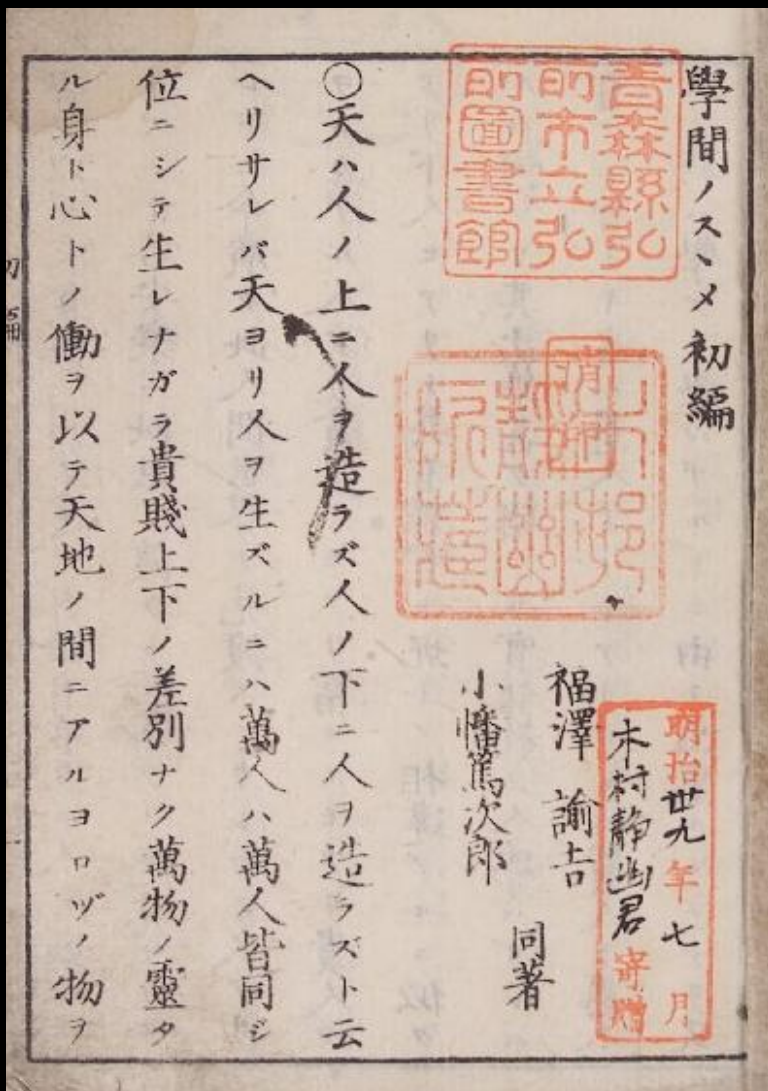 學問ノスヽメ初編
青森縣弘
前市立弘
前圖書館
明治丗九年七月
木村靜幽君寄贈
福澤諭吉
小幡篤次郎
同著
〇天ハ人ノ上ニ人ヲ造ラズ人ノ下ニ人ヲ造ラズト云
ヘリサレバ天ヨリ人ヲ生ズルニハ萬人ハ萬人皆同ジ
位ニシテ生レナガラ貴賤上下ノ差別ナク萬物ノ靈タ
ル身ト心トノ働ヲ以テ天地ノ間ニアルヨロヅノ物ヲ
初編
一